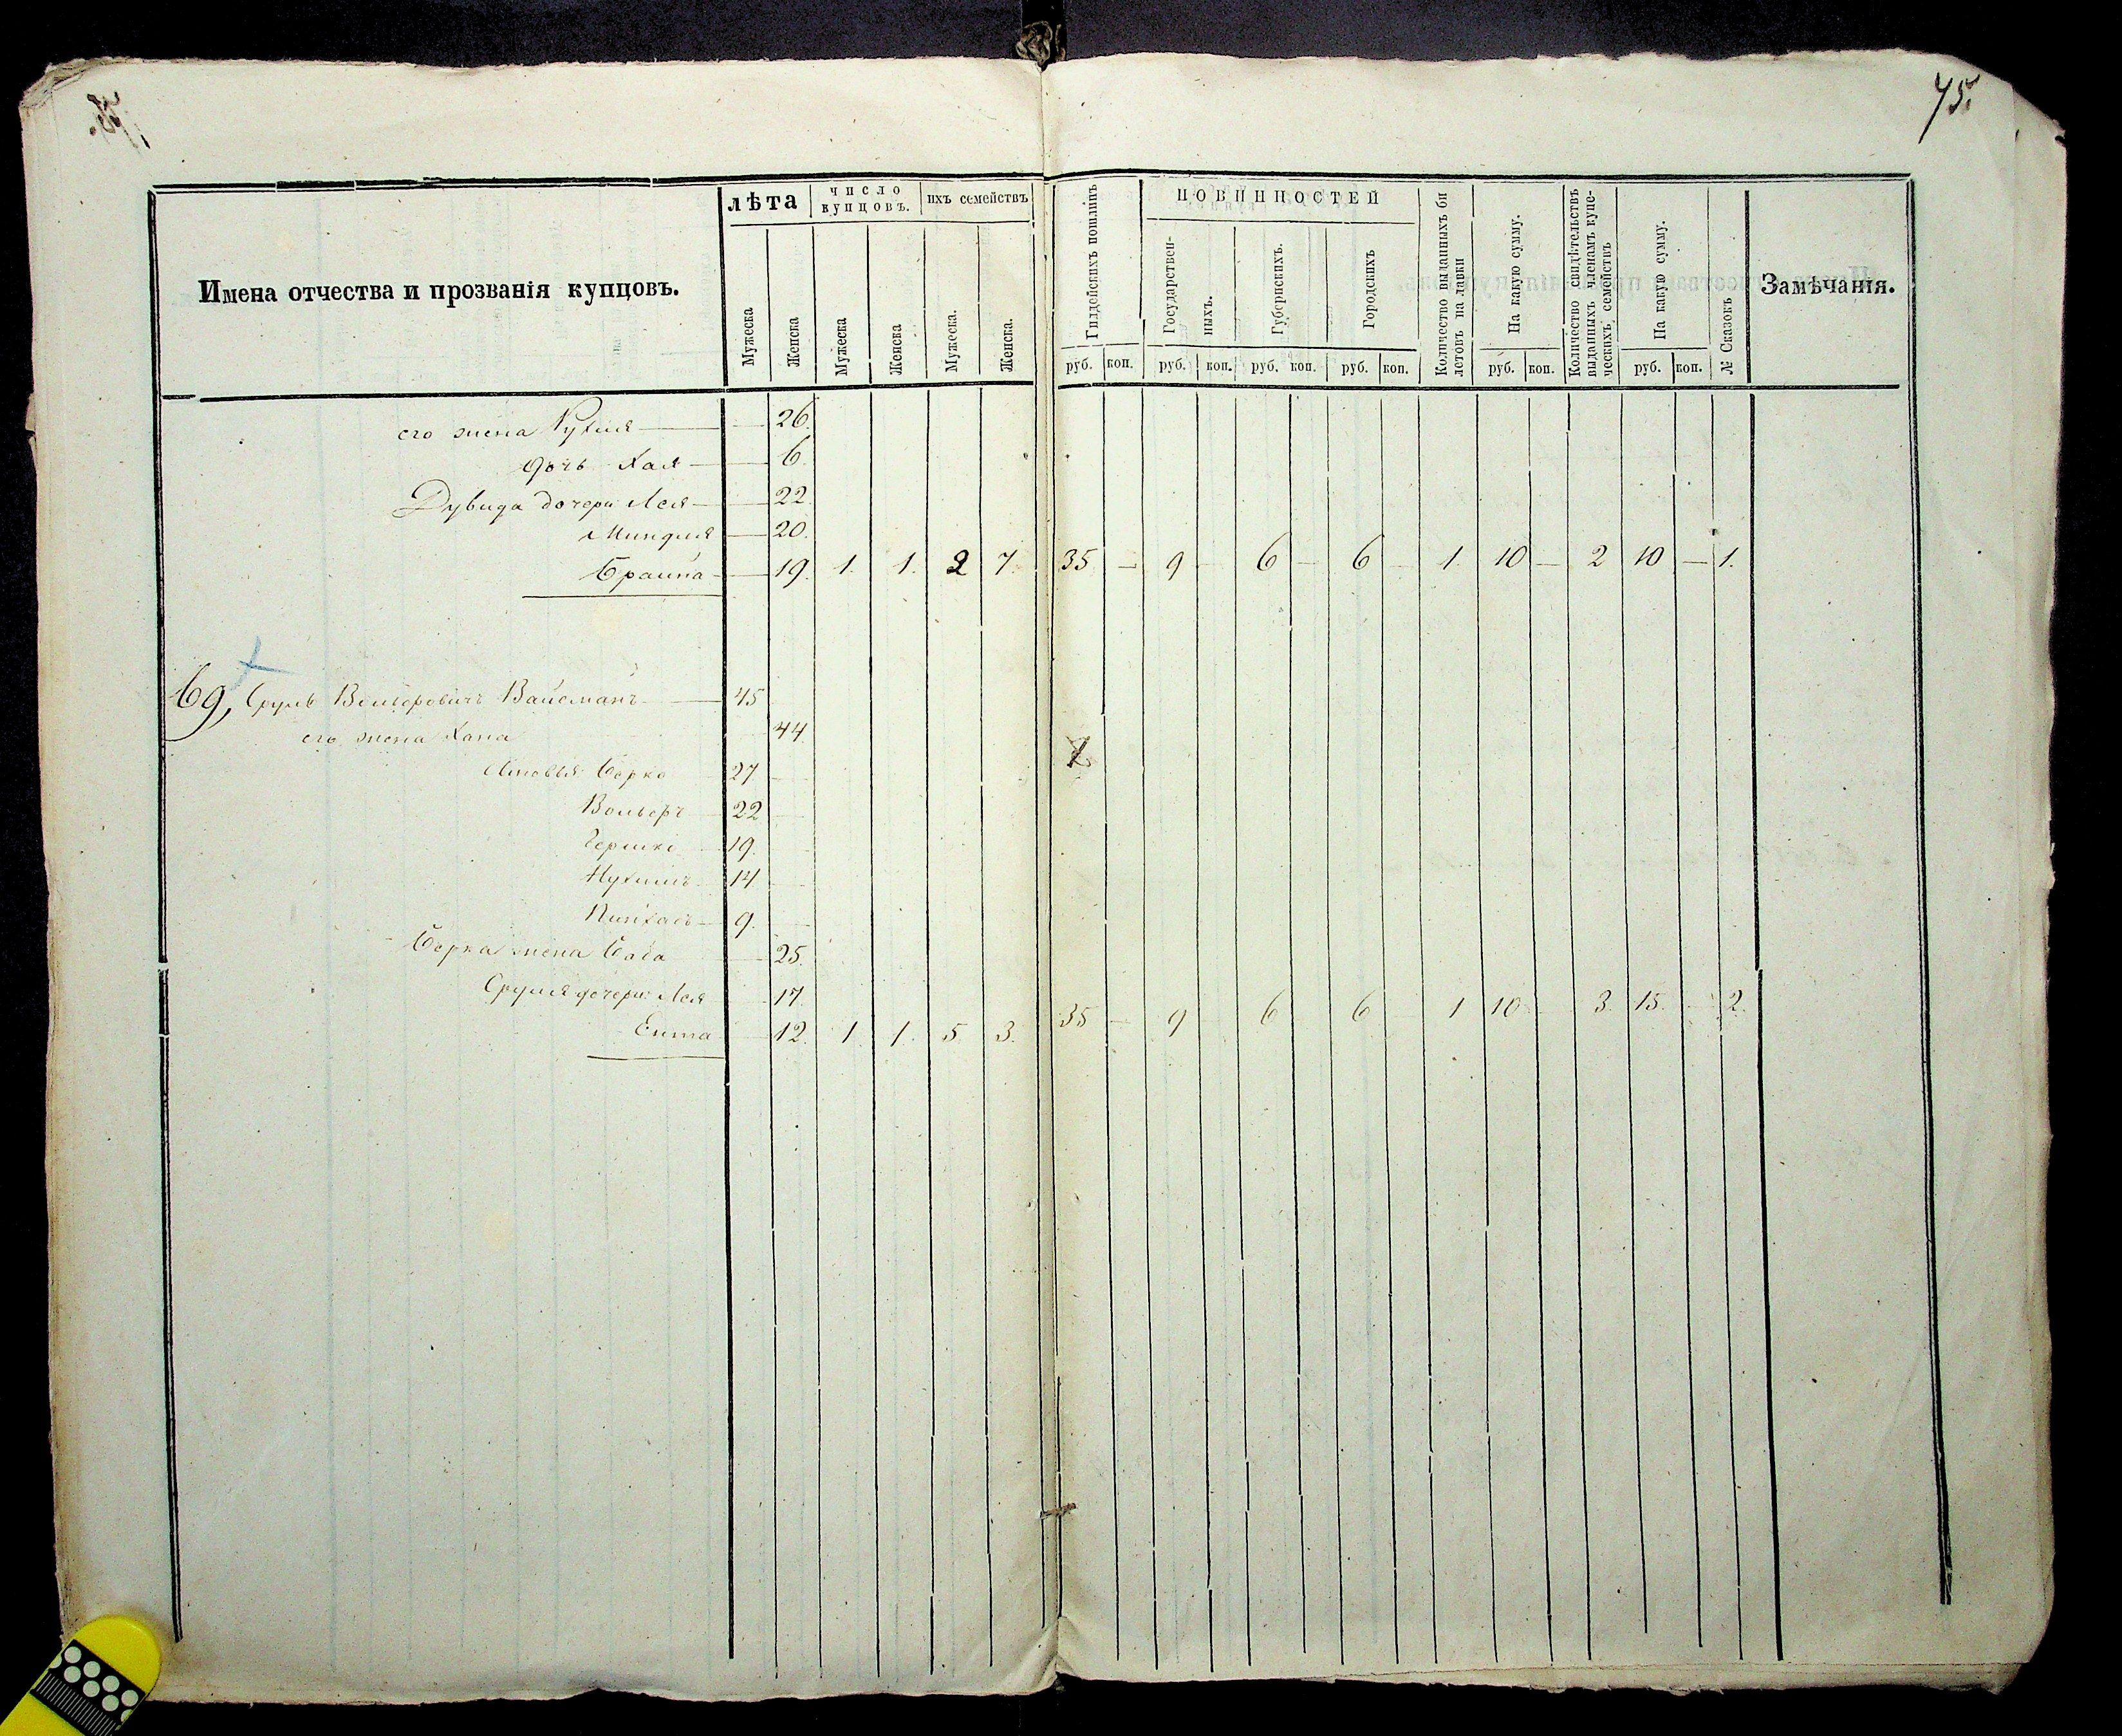 75.
Имена отчества и прозванія купцовъ.
лѣта
Мужеска
Женска
число купцовъ.
Мужеска
Женска
ихъ семействъ
Мужеска.
Женска.
Гилдейскихъ пошлинъ
руб. коп.
ПОВИННОСТЕЙ
Государствен-
ныхъ.
руб. коп.
Губернскихъ.
руб. коп.
Городскихъ
руб. коп.
Количество выданныхъ би
летовъ на лавки
На какую сумму.
руб. коп.
Количество свидѣтельствъ
выданныхъ членамъ купе-
ческихъ семействъ
На какую сумму.
руб. коп.
№ Сказокъ
Замѣчанія.
его жена Рухля — 26.
дочь Хая — 6.
Дувида дочери Лея — 22
Миндля — 20.
Браина — 19. 1. 1. 2 7. 35 — 9 — 6 — 6 — 1. 10 — 2 10 — 1.
69, Сруль Вольфовичъ Вайсманъ — 45
его жена Хана 44
Сыновья Берко 27
Вольфъ 22
Гершко 19.
Нухимъ 14
Пинхасъ 9.
Берка жена Баба 25.
Сруля дочери: Лея 17.
Ента 12. 1 1. 5. 3. 35 — 9 6 6 1 10 3. 15. — 2.